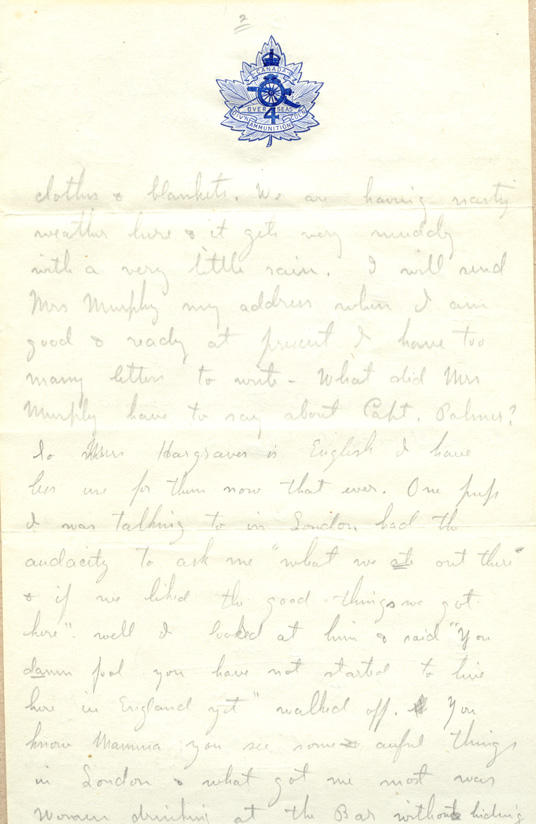 2
CANADA
OVER SEAS
4
DIV'N AMMUNITION COL
clothes & blankets. We are having nasty
weather here & it gets very muddy
with a very little rain. I will send
Mrs Murphy my address when I am
good & ready at present I have too
many letters to write - What did Mrs
Murphy have to say about Capt. Palmer?
So Miss Hargraves is English I have
less use for them now that ever. One pup
I was talking to in London had the
audacity to ask me "what we ate out there"
& if we liked the good things we got
here". well I looked at him & said "You
damn fool you have not started to live
here in England yet" walked off. You
know Mamma you see some awful things
in London & what got me most was
women drinking at the Bar without hiding